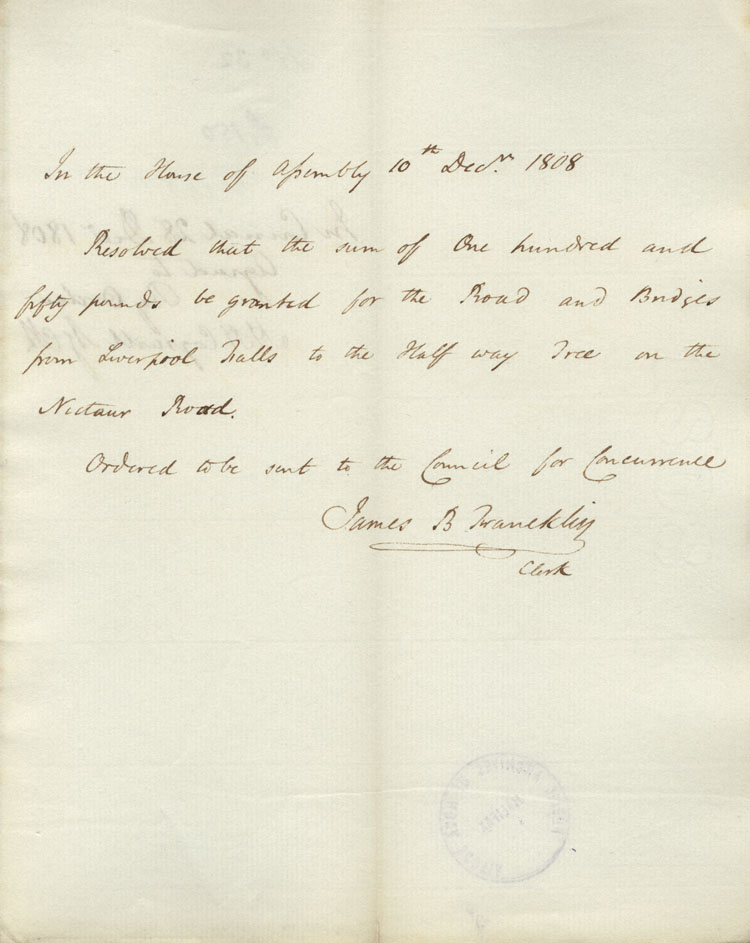 In the House of Assembly 10th Decr. 1808
Resolved that the sum of One hundred and
fifty pounds be granted for the Road and Bridges
from Liverpool Falls to the Half way Tree on the
Nictaux Road.
Ordered to be sent to the Council for Concurrence
James B Francklin
Clerk